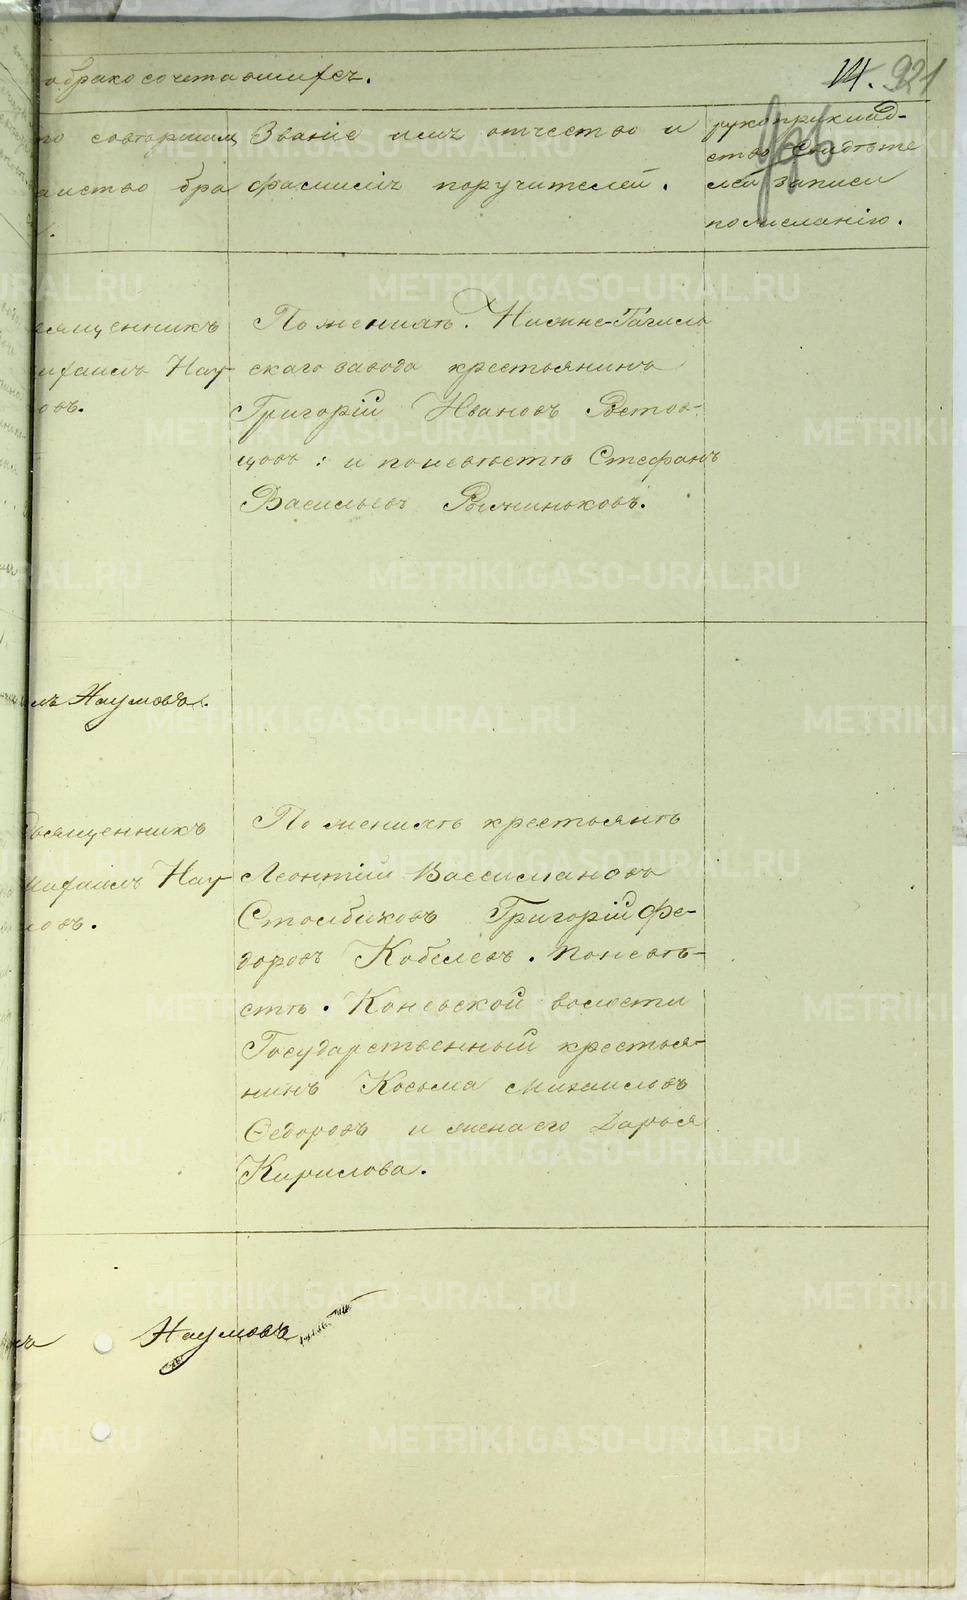 о бракосочетавшихся.
14. 921
то совершилъ
таинство бра
Званіе имя отчество и
фамилія поручителей.
рукоприклад-
ство свидѣте
лей записи
по желанію.
священникъ
ихаилъ Нау
овъ.
По женихѣ. Нижне-Тагиль
скаго завода крестьянинъ
Григорій Ивановъ Ростов-
цовъ: и по невѣстѣ Стефанъ
Васильевъ Рычинковъ.
лъ Наумовъ.
Священникъ
Михаилъ Нау
мовъ.
По женихѣ крестьянѣ
Леонтій Вассиановъ
Столбиковъ Григорій Фе-
доровъ Кобелевъ. По невѣ-
стѣ. Коневской волости
Государственный крестья-
нинъ Косьма Михаиловъ
Ѳедоровъ и жена его Дарья
Кирилова.
Наумовъ
METRIKI.GASO-URAL.RU